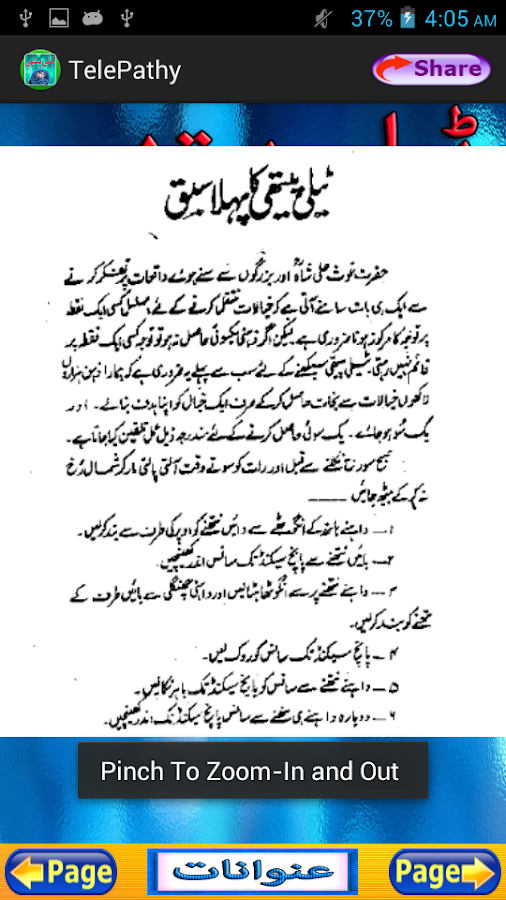 37% 4:05 AM
TelePathy
Share
ٹیلی پیتھی کا پہلا سبق
حضرت غوث علی شاہؒ اور بزرگوں سے سنے ہوئے واقعات پر تفکر کرنے
سے ایک ہی بات سامنے آتی ہے کہ خیالات منتقل کرنے کے لئے مسلسل کسی ایک نقطہ
پر توجہ کا مرکوز ہونا ضروری ہے لیکن اگر ذہنی یکسوئی حاصل نہ ہو تو توجہ کسی ایک نقطہ پر
قائم نہیں رہتی۔ ٹیلی پیتھی سیکھنے کے لئے سب سے پہلے یہ ضروری ہے کہ ہمارا ذہن ہزاروں
لاکھوں خیالات سے نجات حاصل کر کے صرف ایک خیال کو اپنا ہدف بنالے۔ اور
یک سُو ہو جائے۔ یک سوئی حاصل کرنے کے لئے مندرجہ ذیل عمل تلقین کیا جاتا ہے۔
صبح سورج نکلنے سے قبل اور رات کو سوتے وقت آلتی پالتی مار کر شمال رُخ
منہ کر کے بیٹھ جائیں ————
۱۔ داہنے ہاتھ کے انگوٹھے سے دائیں نتھنے کو اوپر کی طرف سے بند کرلیں۔
۲۔ بائیں نتھنے سے پانچ سیکنڈ تک سانس اندر کھینچیں۔
۳۔ داہنے نتھنے پر سے انگوٹھا ہٹالیں اور داہنی چھنگلی سے بائیں طرف کے
نتھنے کو بند کرلیں۔
۴۔ پانچ سیکنڈ تک سانس کو روک لیں۔
۵۔ داہنے نتھنے سے سانس کو پانچ سیکنڈ تک باہر نکالیں۔
۶۔ دوبارہ داہنے ہی نتھنے سے سانس پانچ سیکنڈ تک اندر کھینچیں۔
Pinch To Zoom-In and Out
Page عنوانات Page